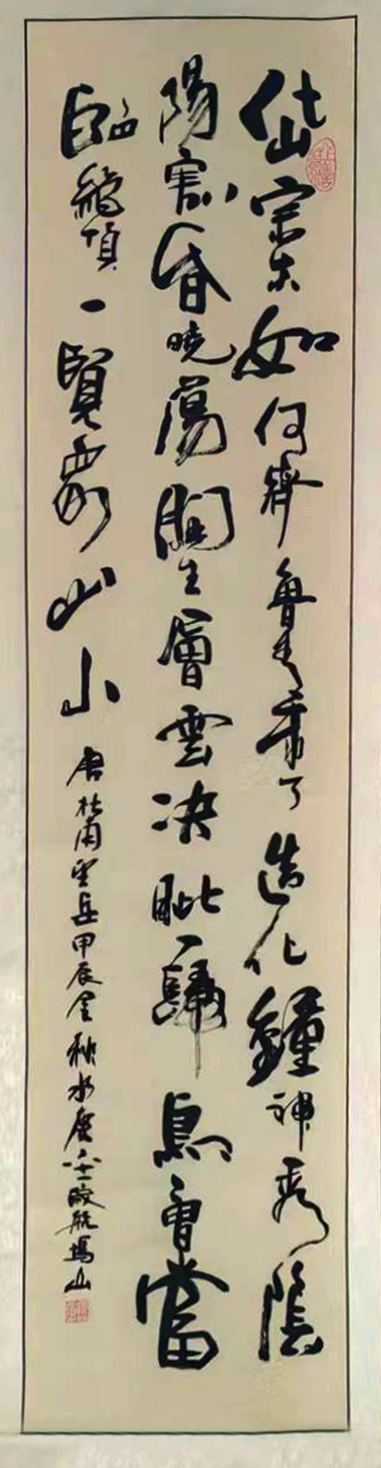 岱宗如何齊魯青未了造化鐘神秀陰
陽割昏曉蕩胸生層雲決眦入歸鳥會當
臨絕頂一覽眾山小 唐杜甫望岳甲辰金秋水航塢山